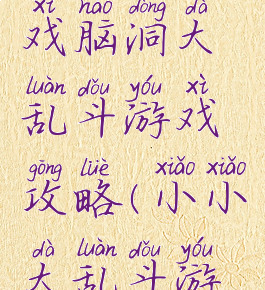 xì nǎo dòng dà
戏脑洞大
luàn dǒu yóu xì
乱斗游戏
gōng lüè ( xiǎo xiǎo
攻略(小小
dà luàn dǒu yóu
大乱斗游